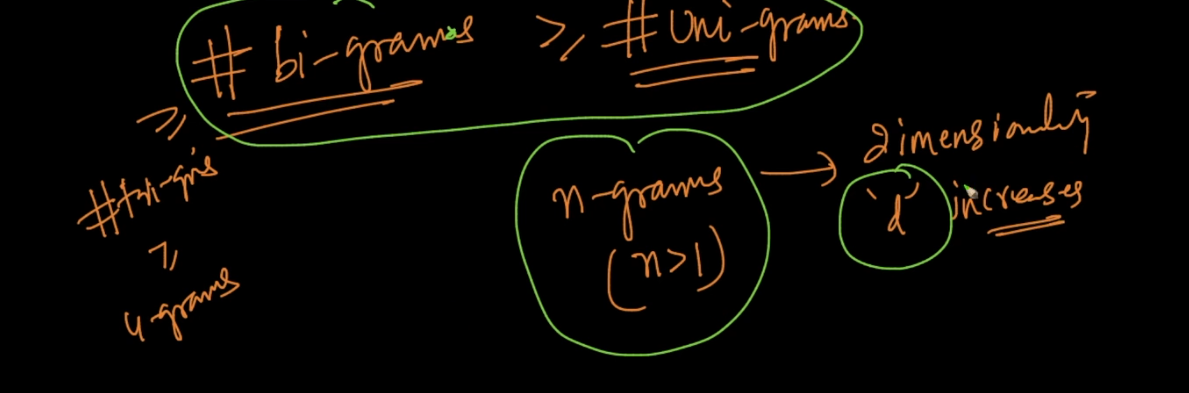 # bi-grams ≥ # uni-grams
≥
# tri-grs
≥
4-grams
n-grams → dimensionality
(n>1) 'd' increases